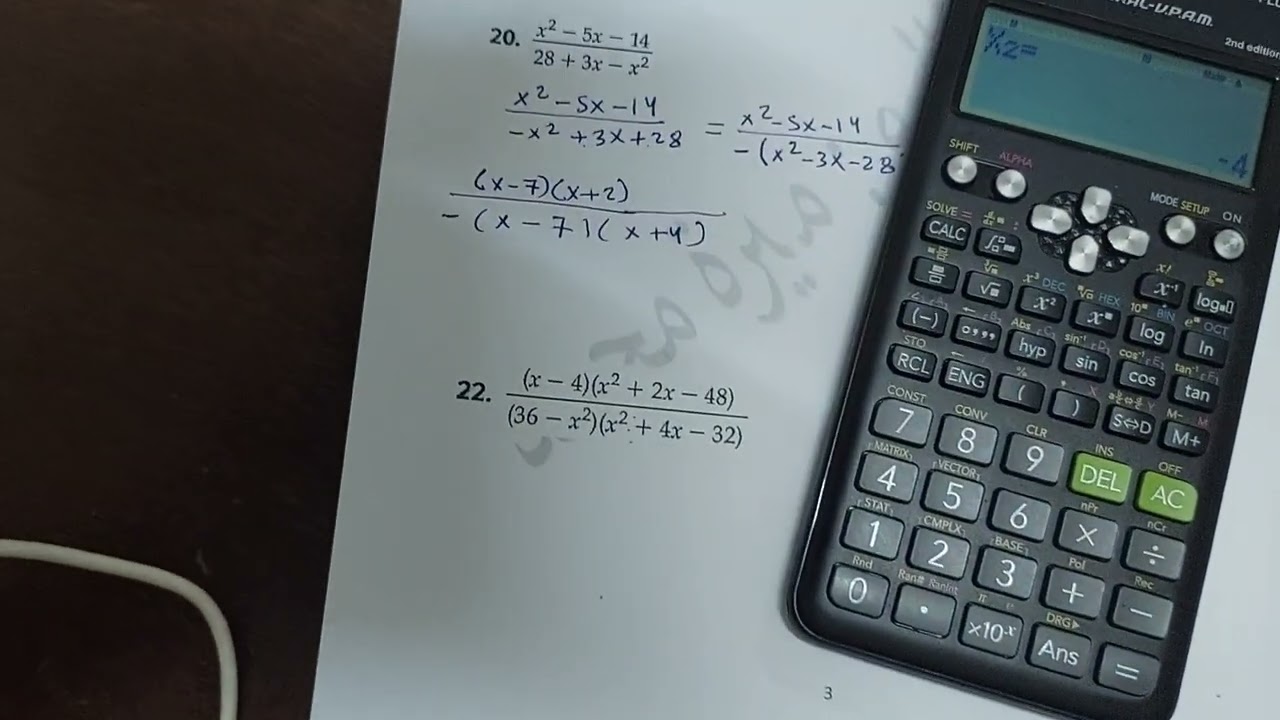 20. x² − 5x − 14 / 28 + 3x − x²
x² − 5x − 14 / −x² + 3x + 28 = x² − 5x − 14 / −(x² − 3x − 28
(x − 7)(x + 2) / −(x − 7)(x + 4)
22. (x − 4)(x² + 2x − 48) / (36 − x²)(x² + 4x − 32)
3
V.P.A.M.
2nd edition
X₂=
-4
SHIFT ALPHA MODE SETUP ON
SOLVE =
CALC x! 
√ x² x⁻¹ log
x³ DEC HEX 10 BIN e OCT
(−) hyp sin cos tan log ln
Abs sin⁻¹ cos⁻¹ tan⁻¹
STO
RCL ENG ( ) S⇔D M+
CONST CONV CLR INS OFF
7 8 9 DEL AC
MATRIX VECTOR nPr nCr
4 5 6 × ÷
STAT CMPLX BASE Pol Rec
1 2 3 + −
Rnd Ran# RanInt π e DRG▶
0 . ×10ˣ Ans =